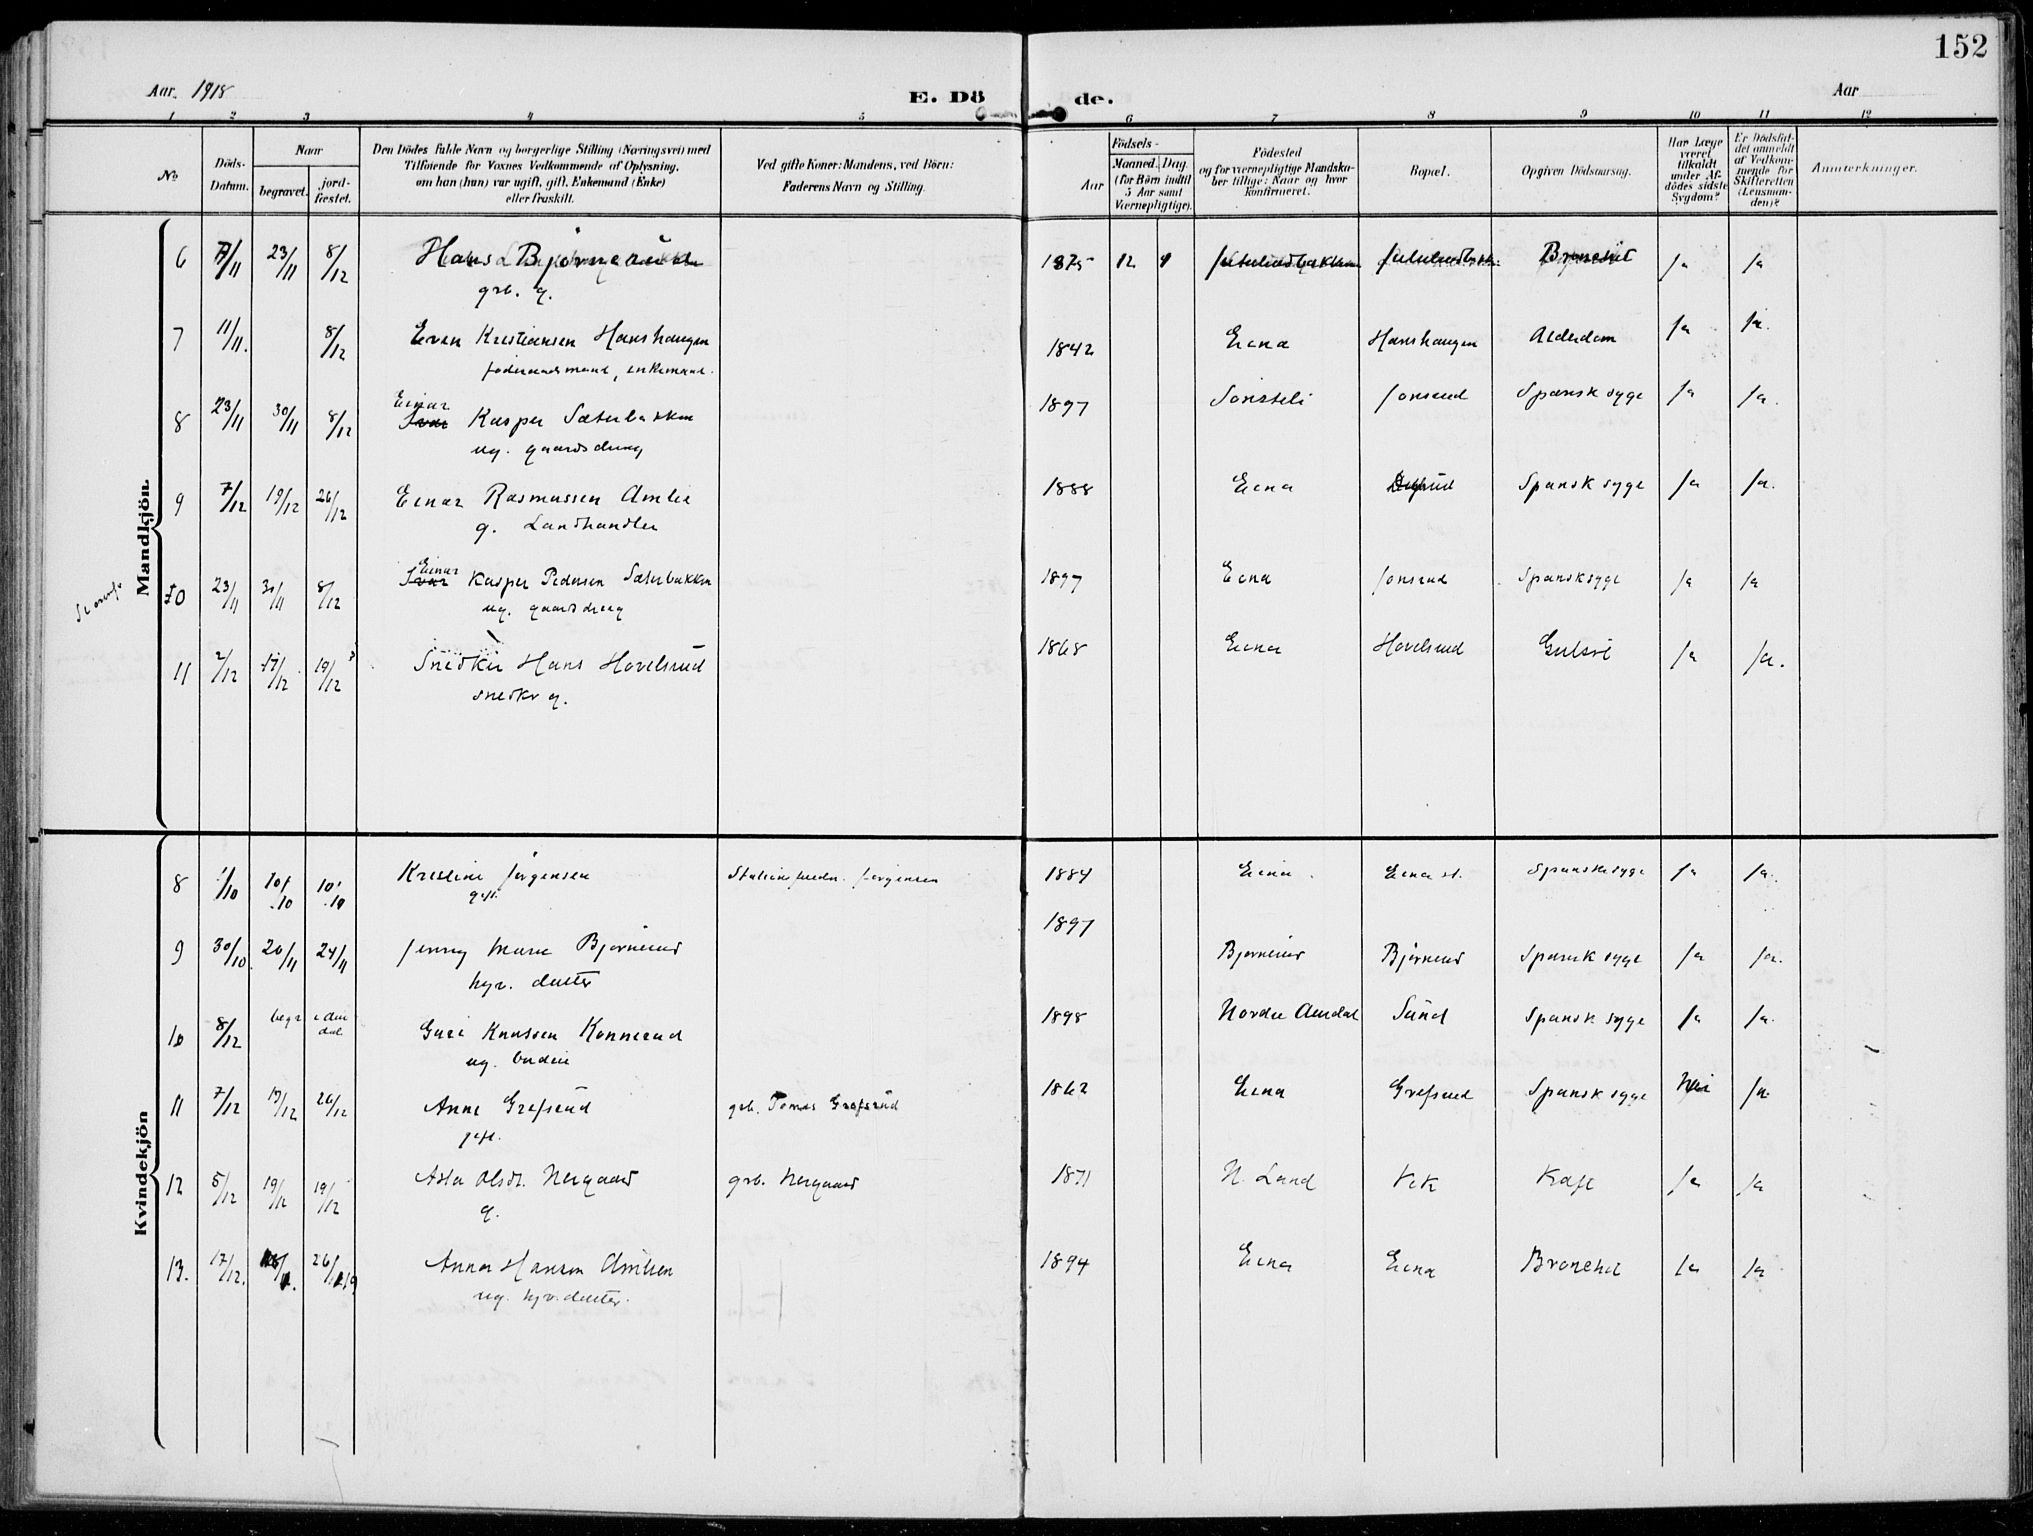 152
Aar. 1918 E. Dö de. Aar
1 2 3 4 5 6 7 8 9 10 11 12
No. Döds-Datum. Naar begravet. jord-fæstet. Den Dödes fulde Navn og borgerlige Stilling (Næringsvei) med Tilföiende for Voxnes Vedkommende af Oplysning, om han (hun) var ugift, gift, Enkemand (Enke) eller fraskilt. Ved gifte Koner: Mandens, ved Börn: Faderens Navn og Stilling. Födsels- Aar Maaned. Dag. (for Börn indtil 5 Aar samt Værnepligtige). Födested og for værnepligtige Mandskaber tillige: Naar og hvor konfirmeret. Bopæl. Opgiven Dödsaarsag. Har Læge været tilkaldt under Afdödes sidste Sygdom? Er Dödsfaldet anmeldt af Vedkommende for Skifteretten (Lensmanden)? Anmærkninger.
Mandkjön.
6 7/11 23/11 8/12 Hans Bjørnerud 1875 12 Bronchit ja ja
grb. g.
7 11/11. 8/12 Even Kristiansen Hanshaugen 1842 Eina Hanshaugen Alderdom ja ja.
føderaadsmand, enkemand.
8 23/11 30/11 8/12 Einar Ivar Kasper Sæterbakken 1897 Sønsteli Jonsrud Spansk syge ja ja.
ug. gaardsdreng
9 7/12 19/12 26/12 Einar Rasmussen Amlie 1888 Eina Spansk syge ja ja.
g. Landhandler
10 23/11 30/11 8/12 Einar Ivar Kasper Pedersen Sæterbakken 1897 Eina Jonsrud Spansksyge ja ja
ug. gaardsdreng
11 2/12 17/12 19/12 Snedker Hans Hovelsrud 1868 Eina Hovelsrud Gulsot ja ja.
snedker g.
Kvindekjön
8 1/10 10/10 10/10 Kristine Jørgensen Stationsmester Jørgensen 1884 Eina Eina st. Spanskesyge ja ja.
gift.
9 30/10. 20/11 24/11 Jenny Marie Bjørnerud 1897 Bjørnerud Bjørnerud Spansk syge ja ja.
hjv. datter
10 8/12 begr. i Aurdal Guri Knutsen Konnerud 1898 Nordre Aurdal Sund Spansk syge ja ja.
ug. budeie
11 7/12 19/12 26/12 Anne Grefsrud grb. Tomas Grefsrud 1862 Eina Grefsrud Spansk syge Nei ja.
gift.
12 5/12 19/12 19/12 Asta Olsdt. Nergaard grb. Nergaard 1871 N. Land Vik Kræft ja ja
g.
13. 17/12. 26/1 19 Anna Hansen Amlien 1894 Eina Eina Bronchit ja ja
ug. hjv. datter.